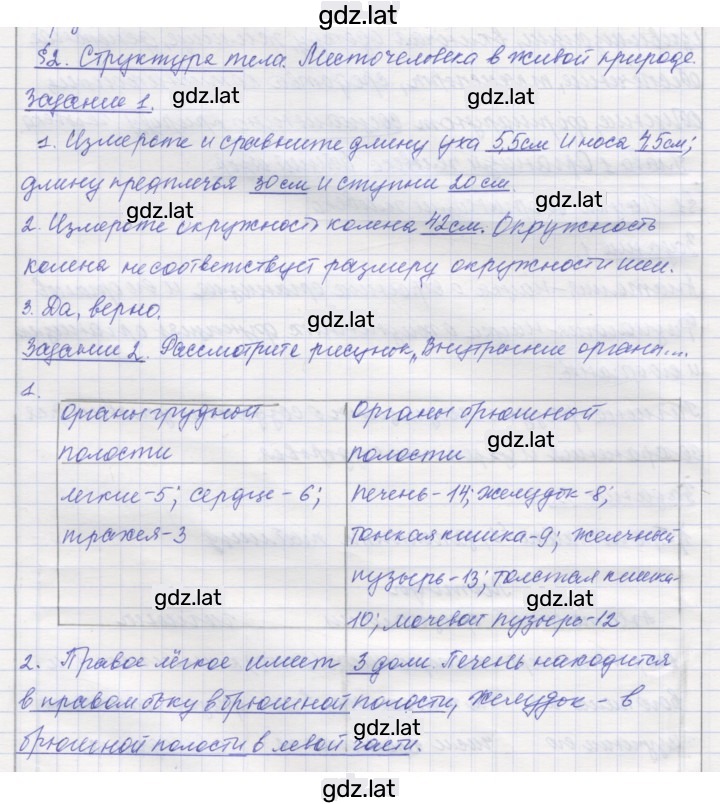 gdz.lat
§2. Структура тела. Место человека в живой природе.
Задание 1.
gdz.lat
gdz.lat
1. Измерьте и сравните длину уха 5,5см и носа 4,5см;
длину предплечья 30см и ступни 20см.
gdz.lat
gdz.lat
2. Измерьте окружность колена 42см. Окружность
колена не соответствует размеру окружности шеи.
3. Да, верно.
gdz.lat
Задание 2. Рассмотрите рисунок „Внутренние органы....
1.
органы грудной
полости
легкие-5; сердце - 6;
трахея-3
Органы брюшной
gdz.lat
полости
печень-14; желудок-8;
тонкая кишка-9; желчный
пузырь-13; толстая кишка-
10; мочевой пузырь-12
gdz.lat
gdz.lat
2. Правое лёгкое имеет 3 доли. Печень находится
в правом боку в брюшной полости, желудок - в
gdz.lat
брюшной полости в левой части.
gdz.lat